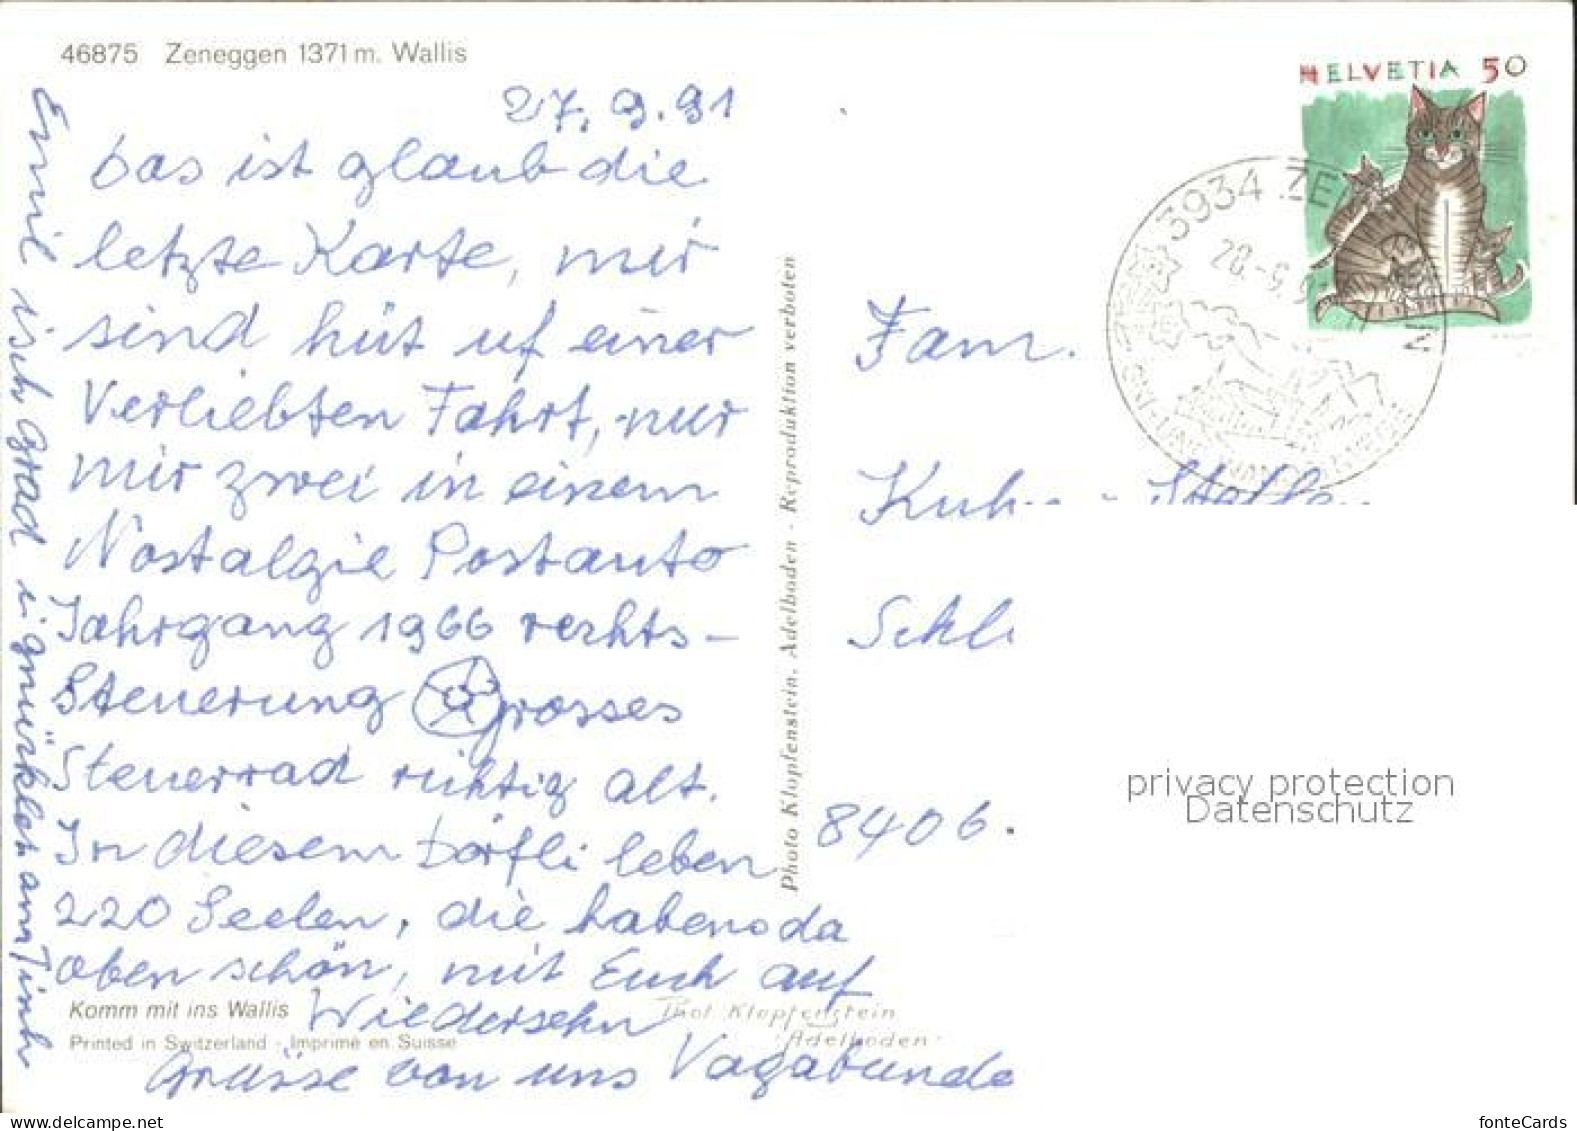 46875 Zeneggen 1371 m. Wallis
HELVETIA 50
3934 ZE
27.9.91
Das ist glaub die
letzte Karte, mir
sind hüt uf einer
Verliebten Fahrt, nur
mir zwei in einem
Nostalgie Postauto
Jahrgang 1966 rechts-
Steuerung grosses
Steuerrad richtig alt.
In diesem Dörfli leben
220 Seelen, die haben s da
oben schön, mit Euch auf
Wiedersehn
Grüsse von uns Vagabunde
Emil isch grad ignürklet am Tisch
Komm mit ins Wallis
Printed in Switzerland - Imprimé en Suisse
Phot. Klopfenstein
Adelboden
Photo Klopfenstein, Adelboden - Reproduktion verboten
Fam.
Kuh
Schl
8406.
privacy protection
Datenschutz
www.delcampe.net
fonteCards